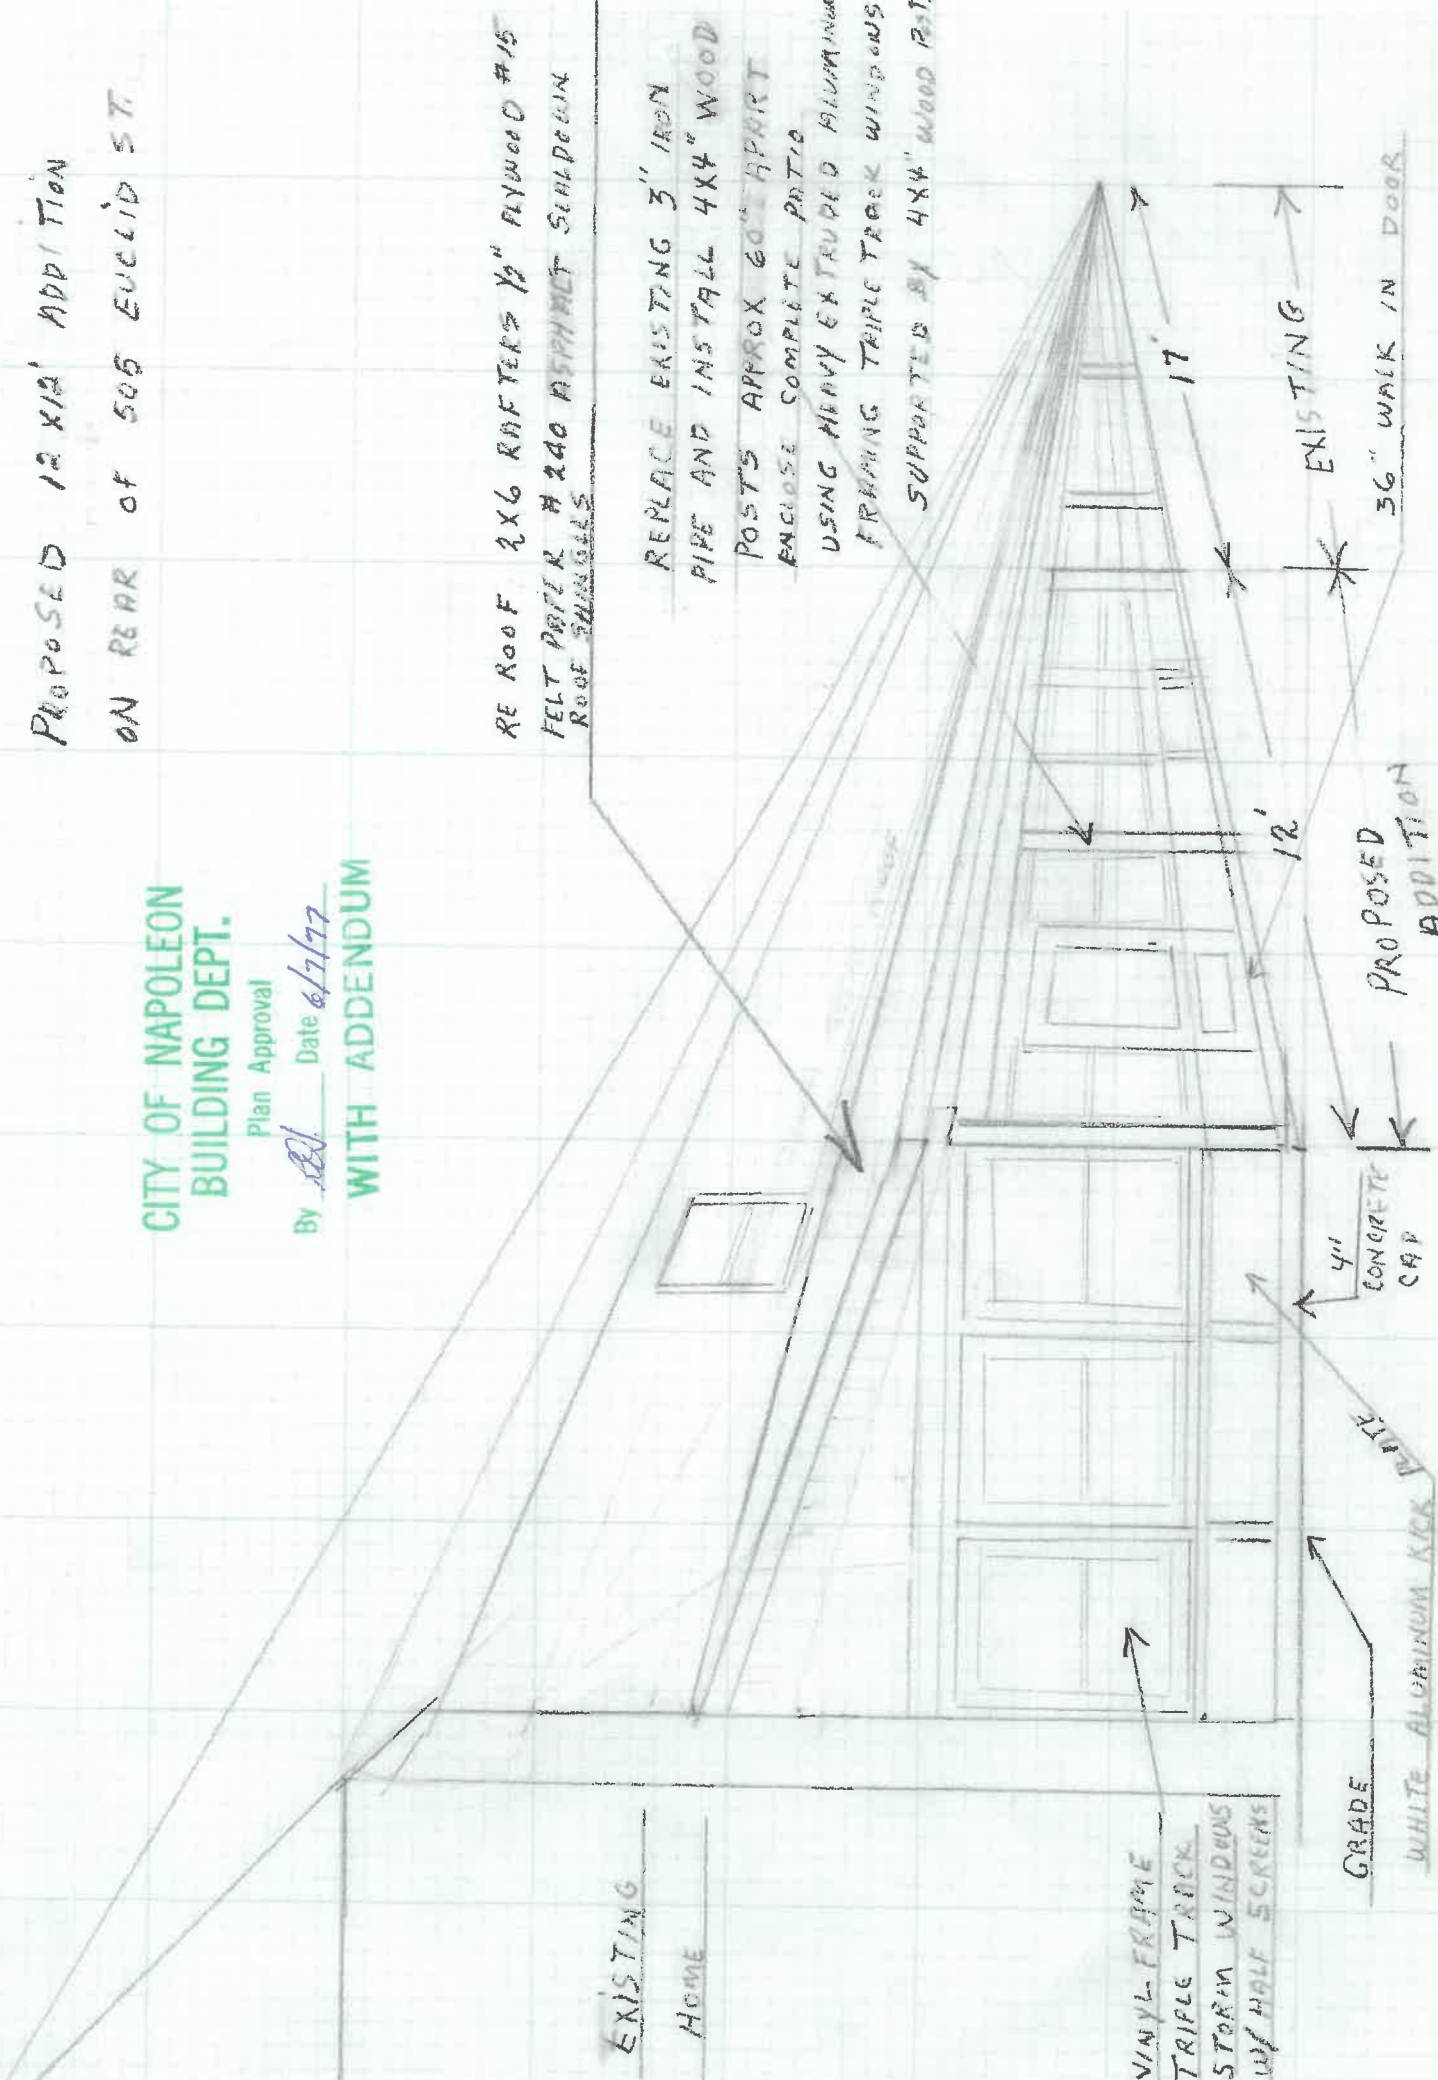 PROPOSED 12 X12' ADDITION
ON REAR OF 505 EUCLID ST.
CITY OF NAPOLEON
BUILDING DEPT.
Plan Approval
By Date 6/7/77
WITH ADDENDUM
RE ROOF 2X6 RAFTERS 1/2" PLYWOOD #15
FELT PAPER # 240 ASPHALT SEALDOWN
ROOF SHINGLES
REPLACE EXISTING 3" IRON
PIPE AND INSTALL 4X4" WOOD
POSTS APPROX 60" APART
ENCLOSE COMPLETE PATIO
USING HEAVY EXTRUDED ALUMINUM
FRAMING TRIPLE TRACK WINDOWS
SUPPORTED BY 4X4" WOOD POST
EXISTING
HOME
17'
12'
EXISTING
PROPOSED
ADDITION
36" WALK IN DOOR
4"
CONCRETE
CAP
VINYL FRAME
TRIPLE TRACK
STORM WINDOWS
W/ HALF SCREENS
GRADE
WHITE ALUMINUM KICK